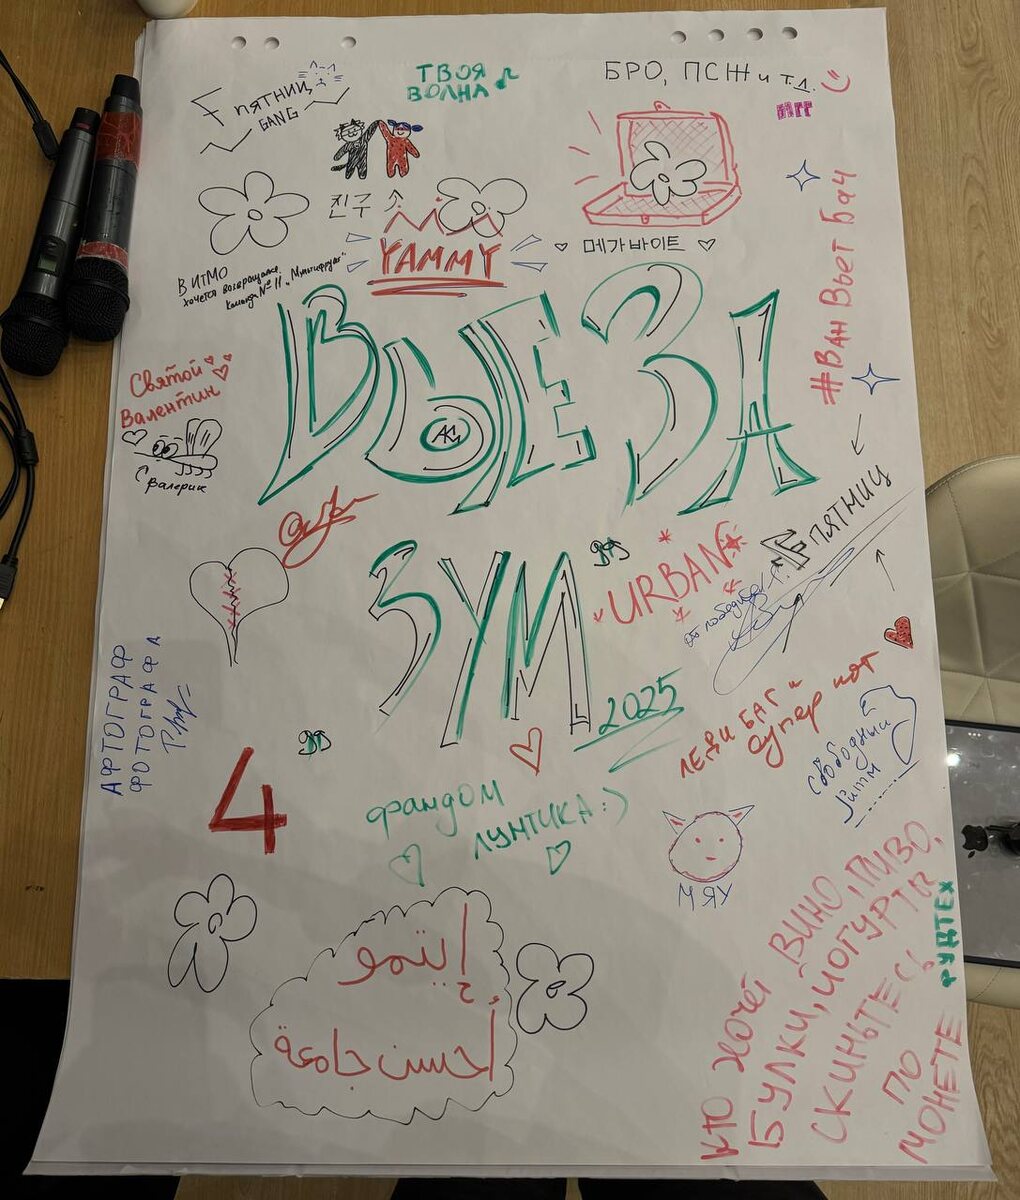 F ПЯТНИЦ
GANG
ТВОЯ
ВОЛНА
БРО, ПСЖ и т.д. :)
친구 소
YAMMY
♡ 메가바이트 ♡
В ИТМО
хочется возвращаться,
команда № 11 „Мультифрукт“
#Ван Вьет Бач
Святой
Валентин
ВЫЕЗА
с валерик
F ПЯТНИЦ
URBAN
ЗУМ
2025
АФТОГРАФ
ФОТОГРАФА
ЛЕДИ БАГ И
супер кот
свободный
итмо
4
фандом
ЛУНТИКА :)
МЯУ
إيتمو
أحسن جامعة
ФУДТЕХ
КТО ХОЧЕТ ВИНО, ПИВО,
БУЛКИ, ЙОГУРТЫ,
СКИНЬТЕСЬ
ПО
МОНЕТЕ